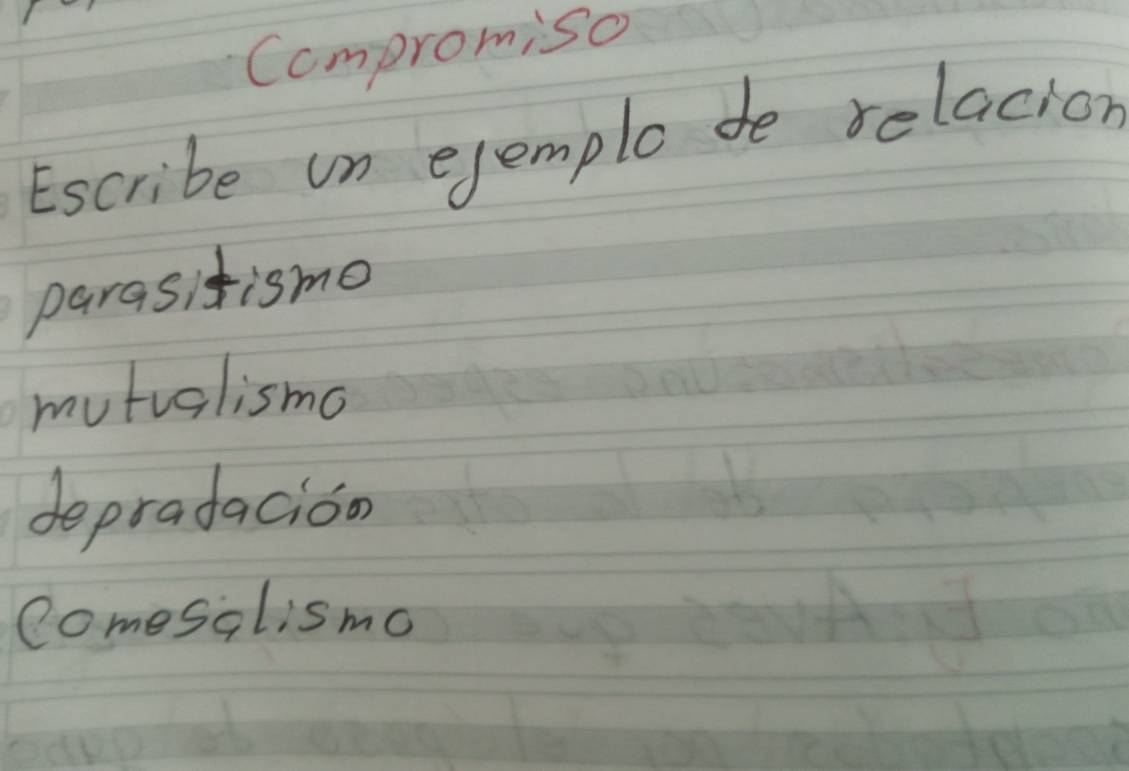 Compromiso
Escribe un ejemplo de relacion
parasitismo
mutualismo
depradación
Comesalismo